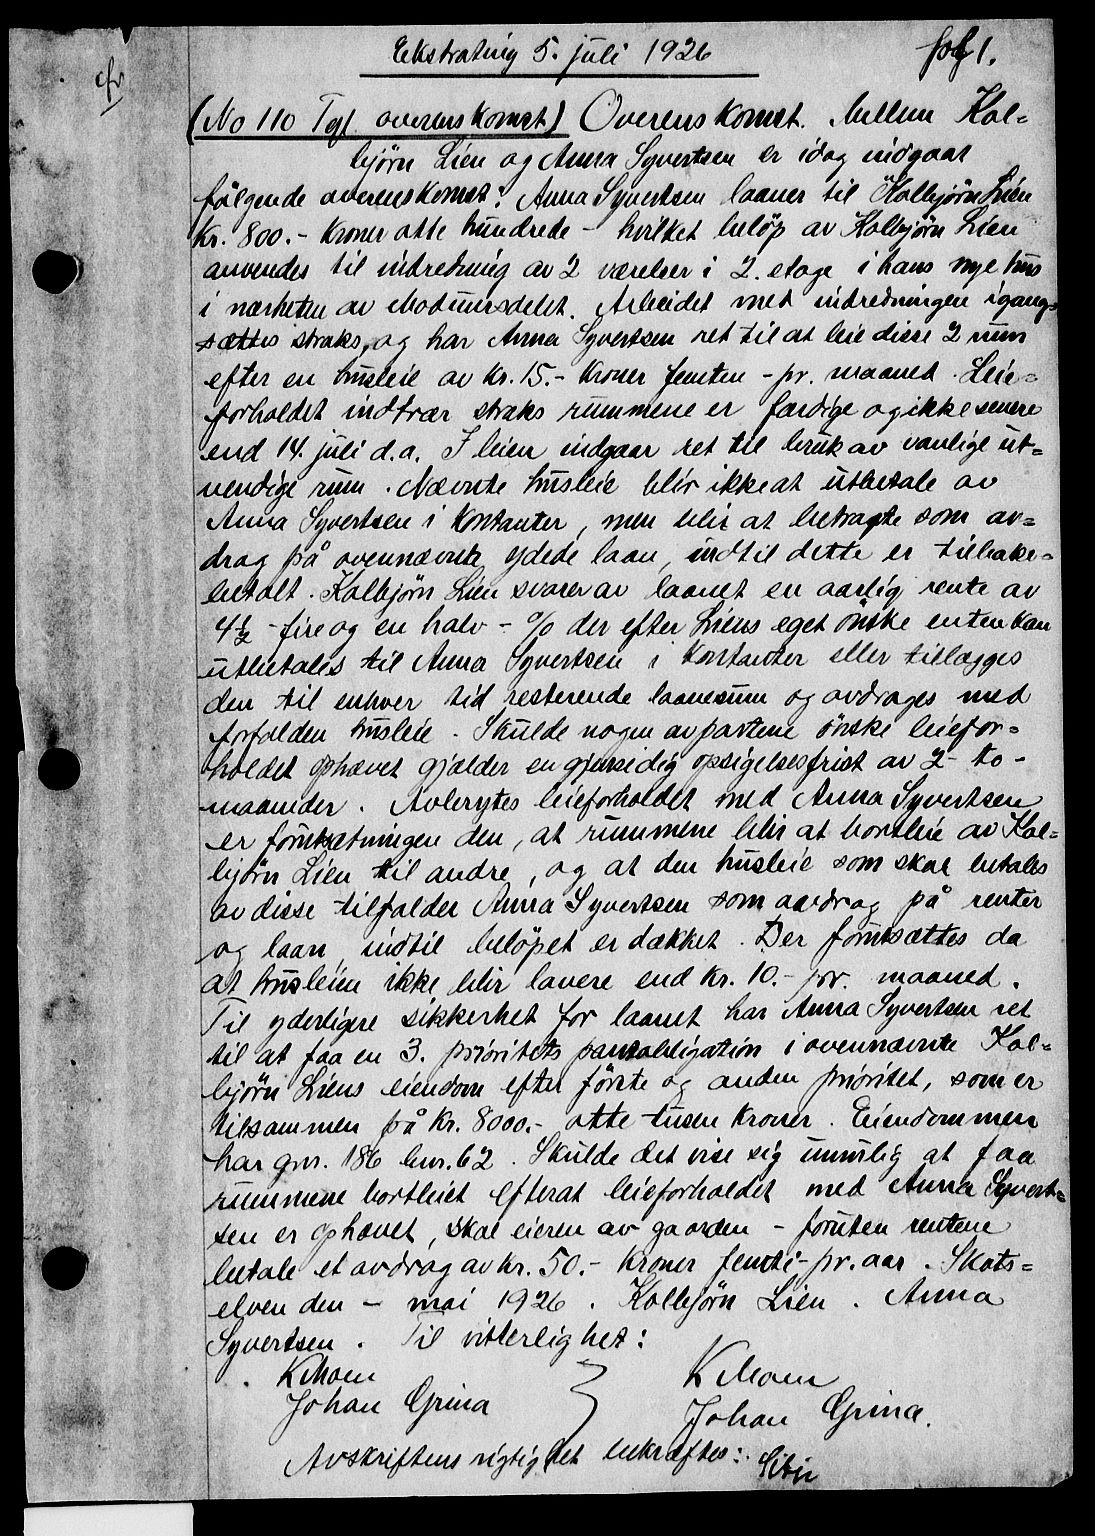 Ekstrating 5. juli 1926
fol 1.
(No 110 Tgl. overenskomst) Overenskomst. Mellem Kol=
björn Lien og Anna Syvertsen er idag indgaat
fölgende overenskomst: Anna Syvertsen laaner til Kolbjörn Lien
Kr. 800.- kroner otte hundrede - hvilket belöp av Kolbjörn Lien
anvendes til indredning av 2 værelser i 2. etage i hans nye hus
i nærheten av Modumsdelet. Arbeidet med indredningen igang=
sættes straks, og har Anna Syvertsen ret til at leie disse 2 rum
efter en husleie av kr. 15.- kroner femten - pr. maaned. Leie=
forholdet indtrær straks rummene er færdige og ikke senere
end 14. juli d.a. I leien indgaar ret til bruk av vanlige ut=
vendige rum. Nævnte husleie blir ikke at utbetale av
Anna Syvertsen i kontanter, men blir at betragte som av=
drag på ovennævnte ydede laan, indtil dette er tilbake=
betalt. Kolbjörn Lien svarer av laanet en aarlig rente av
4½ - fire og en halv - % der efter Liens eget önske enten kan
utbetales til Anna Syvertsen i kontanter eller tillægges
den til enhver tid resterende laanesum og avdrages med
forfalden husleie. Skulde nogen av partene önske leiefor=
holdet ophævet gjælder en gjensidig opsigelsesfrist av 2 - to -
maaneder. Avbrytes leieforholdet med Anna Syvertsen
er forutsætningen den, at rummene blir at bortleie av Kol=
björn Lien til andre, og at den husleie som skal betales
av disse tilfalder Anna Syvertsen som avdrag på renter
og laan, indtil belöpet er dækket. Der forutsættes da
at husleien ikke blir lavere end kr. 10.- pr. maaned.
Til yderligere sikkerhet for laanet har Anna Syvertsen ret
til at faa en 3. prioritets pantobligation i ovennævnte Kol=
björn Liens eiendom efter förste og anden prioritet, som er
tilsammen på kr. 8000.- otte tusen kroner. Eiendommen
har gnr. 186 bnr. 62. Skulde det vise sig umulig at faa
rummene bortleiet efterat leieforholdet med Anna Syvert=
sen er ophævet, skal eieren av gaarden - foruten rentene
betale et avdrag av kr. 50.- kroner femti - pr. aar. Skots=
elven den - mai 1926. Kolbjörn Lien. Anna
Syvertsen. Til vitterlighet:
K Moen K Moen
Johan Grina Johan Grina.
Avskriftens rigtighet bekræftes: